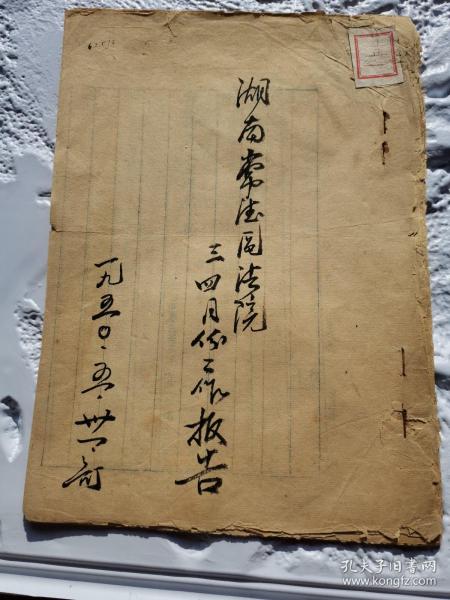 湖南常德區法院
三四月份工作报告
一九五〇·五·卅一日
孔夫子旧书网
www.kongfz.com